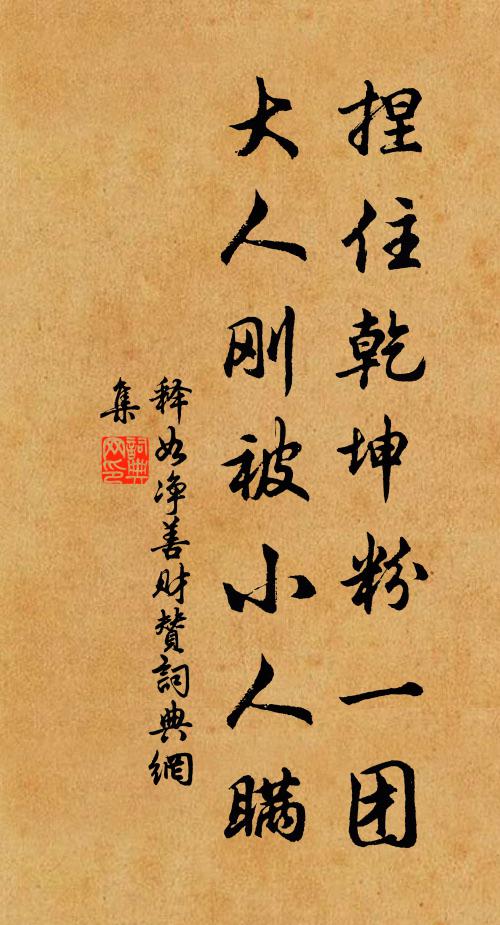 捏住乾坤粉一团
大人刚被小人瞒
释如净善财赞詞典網
集
詞典网印